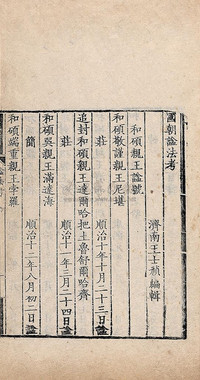 國朝謚法考
濟南王士禛編輯
和碩親王謚號
和碩敬謹親王尼堪
莊 順治十年十月二十三日謚
追封和碩親王達爾哈把土魯舒爾哈齊
莊 順治十一年三月二十四日謚
和碩吳親王滿達海
簡 順治十二年八月初二日謚
和碩端重親王孛羅